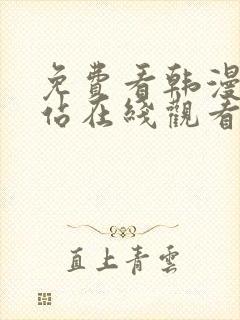 免費看韩漫
佔在綫觀看
直上青雲